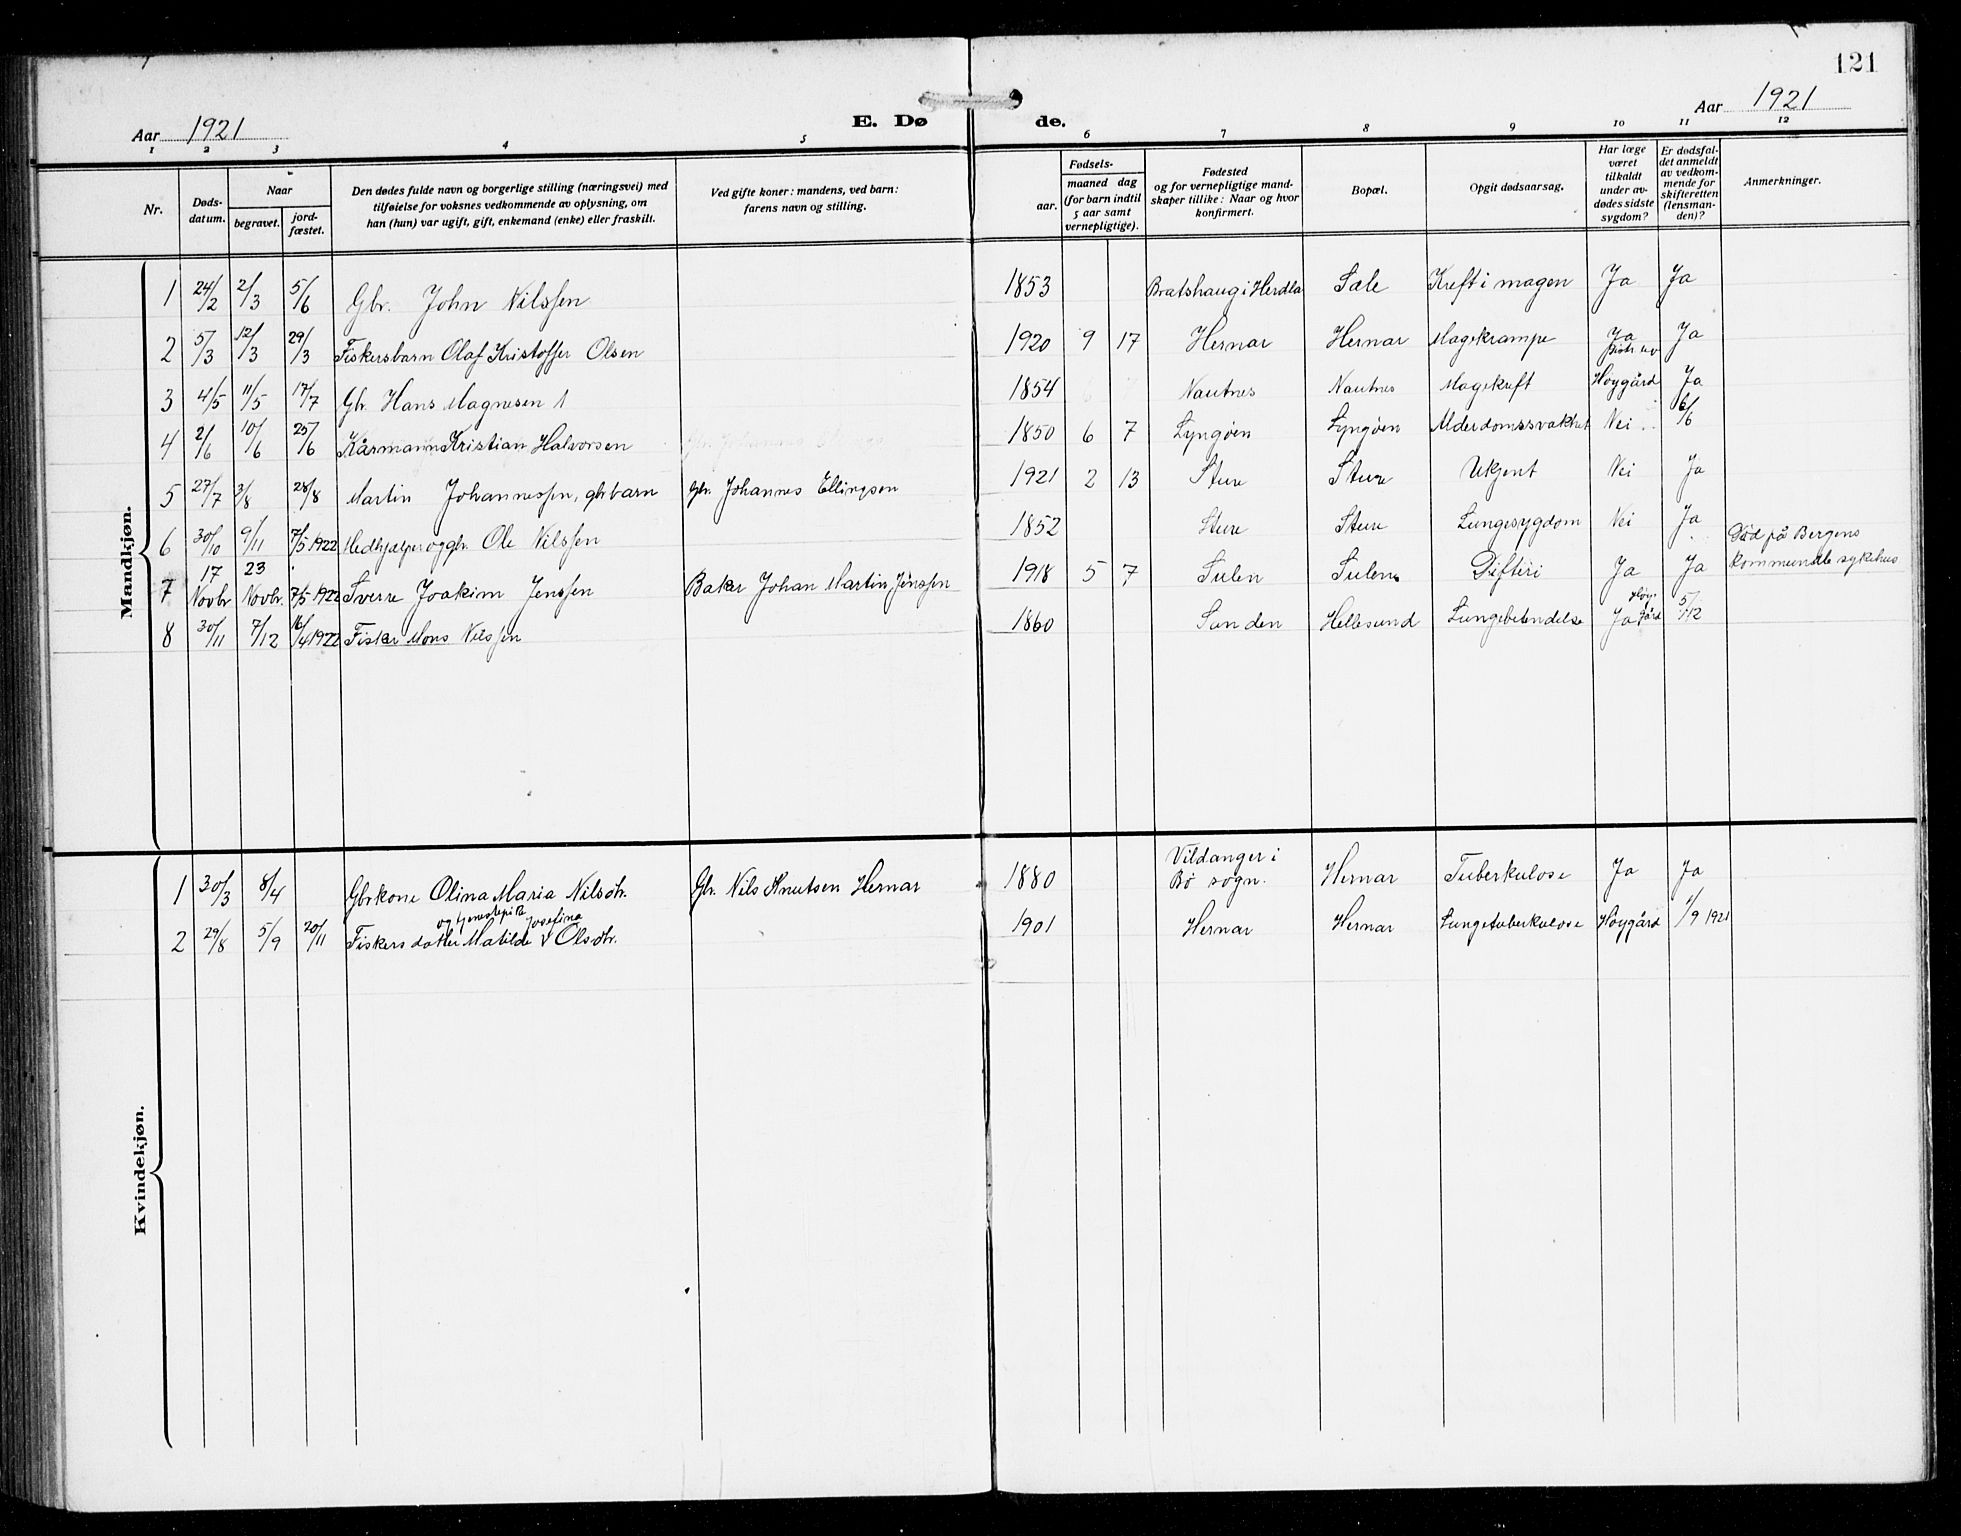 121
Aar 1921 E. Dø de. Aar 1921
1 2 3 4 5 6 7 8 9 10 11 12
Nr. Døds-datum. Naar begravet. jord-fæstet. Den dødes fulde navn og borgerlige stilling (næringsvei) med tilføielse for voksnes vedkommende av oplysning, om han (hun) var ugift, gift, enkemand (enke) eller fraskilt. Ved gifte koner: mandens, ved barn: farens navn og stilling. Fødsels- aar. maaned dag (for barn indtil 5 aar samt vernepligtige). Fødested og for vernepligtige mand-skaper tillike: Naar og hvor konfirmert. Bopæl. Opgit dødsaarsag. Har læge været tilkaldt under av-dødes sidste sygdom? Er dødsfal-det anmeldt av vedkom-mende for skifteretten (lensman-den)? Anmerkninger.
Mandkjøn.
1 24/2 2/3 5/6 Gbr. John Nilssen 1853 Bratshaug i Herdla Sæle Kreft i magen Ja Ja
2 5/3 12/3 29/3 Fiskersbarn Olaf Kristoffer Olsen 1920 9 17 Hernar Hernar Magekrampe Ja Ja
3 4/5 11/5 17/7 Gbr. Hans Magnesen 1854 Nautnes Nautnes Magekreft Høygård Ja
4 2/6 10/6 25/6 Kårmann Kristian Halvorsen 1850 6 7 Lyngøen Lyngøen Alderdomssvakhet Nei 6/6
5 27/7 3/8 28/8 Martin Johannessen, gbr barn Gbr. Johannes Ellingsen 1921 2 13 Sture Sture Ukjent Nei Ja
6 30/10 9/11 7/5 1922 Medhjælper og gbr. Ole Nilssen 1852 Sture Sture Lungesygdom Nei Ja
7 17 Novbr 23 Novbr. 7/5 1922 Sverre Joakim Jenssen Baker Johan Martin Jenssen 1918 5 7 Sulen Sulen Difteri Ja Ja Død på Bergens kommunale sykehus
8 30/11 7/12 16/4 1922 Fisker Mons Nilssen 1860 Sanden Hellesund Lungebetendelse Ja Høygård 5/12
Kvindekjøn.
1 30/3 8/4 Gbrkone Olina Maria Nilsdtr. Gbr. Nils Knutsen Hernar 1880 Vildanger i Bø sogn. Hernar Tuberkulose Ja Ja
2 29/8 5/9 20/11 Fiskers datter og tjenestepike Matilde Josefina Olsdtr. 1901 Hernar Hernar Lungetuberkulose Høygård 1/9 1921